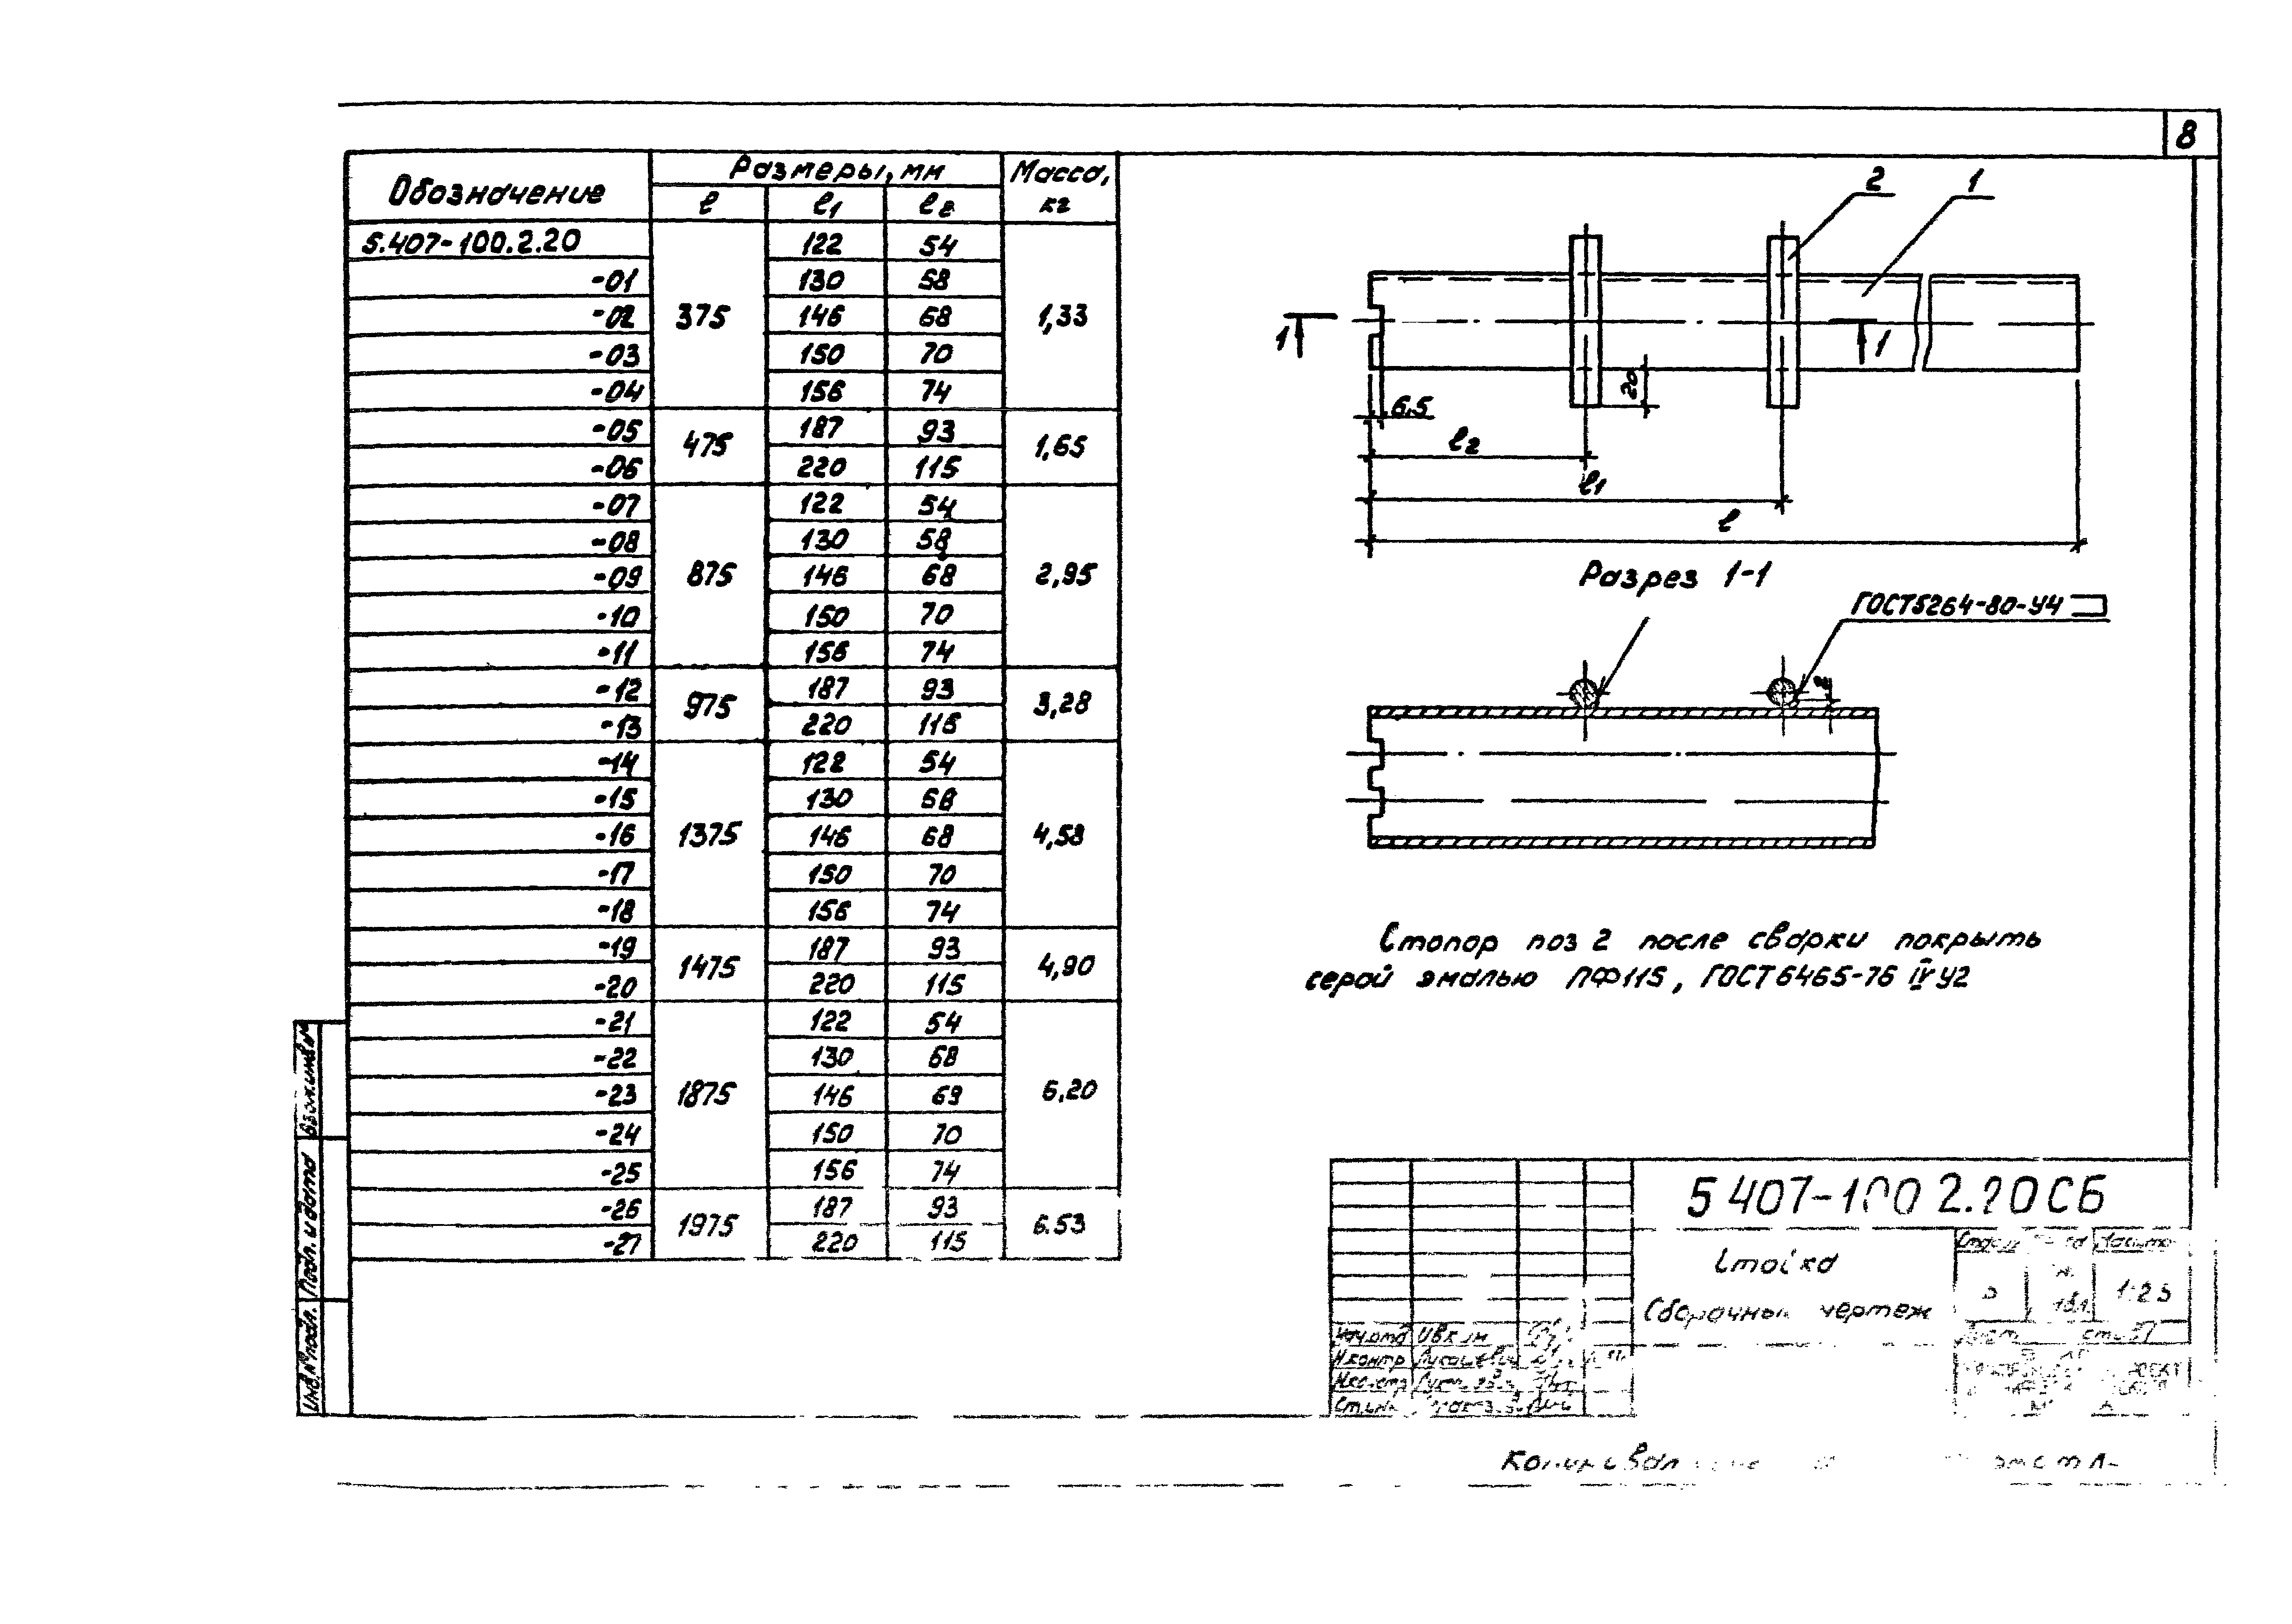 8
Обозначение Размеры, мм Масса, кг
l l1 l2
5.407-100.2.20 375 122 54 1,33
-01 130 58
-02 146 68
-03 150 70
-04 156 74
-05 475 187 93 1,65
-06 220 115
-07 875 122 54 2,95
-08 130 58
-09 146 68
-10 150 70
-11 156 74
-12 975 187 93 3,28
-13 220 115
-14 1375 122 54 4,58
-15 130 68
-16 146 68
-17 150 70
-18 156 74
-19 1475 187 93 4,90
-20 220 115
-21 1875 122 54 6,20
-22 130 68
-23 146 69
-24 150 70
-25 156 74
-26 1975 187 93 6.53
-27 220 115
2 1
1 1
20
6.5
l2
l1
l
Разрез 1-1
ГОСТ5264-80-У4
2
Стопор поз 2 после сварки покрыть
серой эмалью ПФ115, ГОСТ6465-76 IV У2
Взам.инв.№
Подп. и дата
Инв.№ подл.
5 407-100 2.20СБ
Стойка
Сборочный чертеж
1:25
Н.контр
Копировал